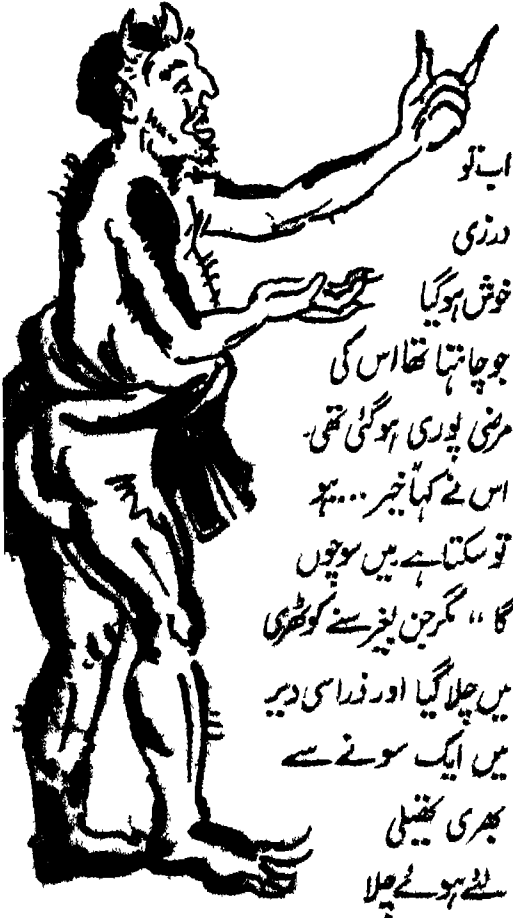 اب تو
درزی
خوش ہو گیا
جو چاہتا تھا اس کی
مرضی پوری ہو گئی تھی۔
اس نے کہا "خیر .... ہو
تو سکتا ہے میں سوچوں
گا" مگر جن بغیر سنے کوٹھڑی
میں چلا گیا اور ذرا سی دیر
میں ایک سونے سے
بھری تھیلی
لئے ہوئے چلا